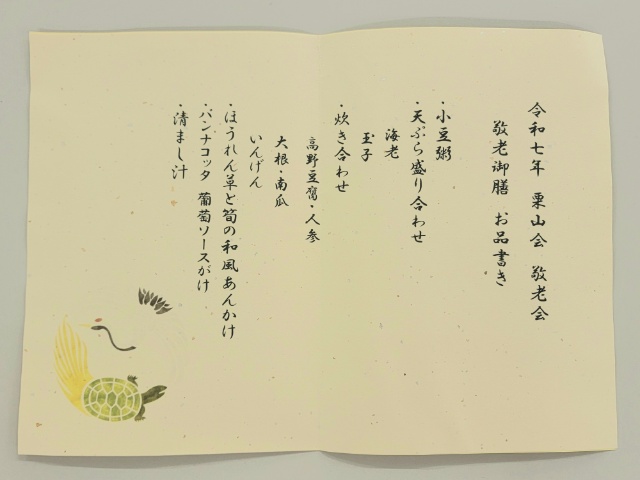 令和七年 栗山会 敬老会
敬老御膳 お品書き
・小豆粥
・天ぷら盛り合わせ
海老
玉子
・炊き合わせ
高野豆腐・人参
大根・南瓜
いんげん
・ほうれん草と筍の和風あんかけ
・パンナコッタ 葡萄ソースがけ
・清まし汁